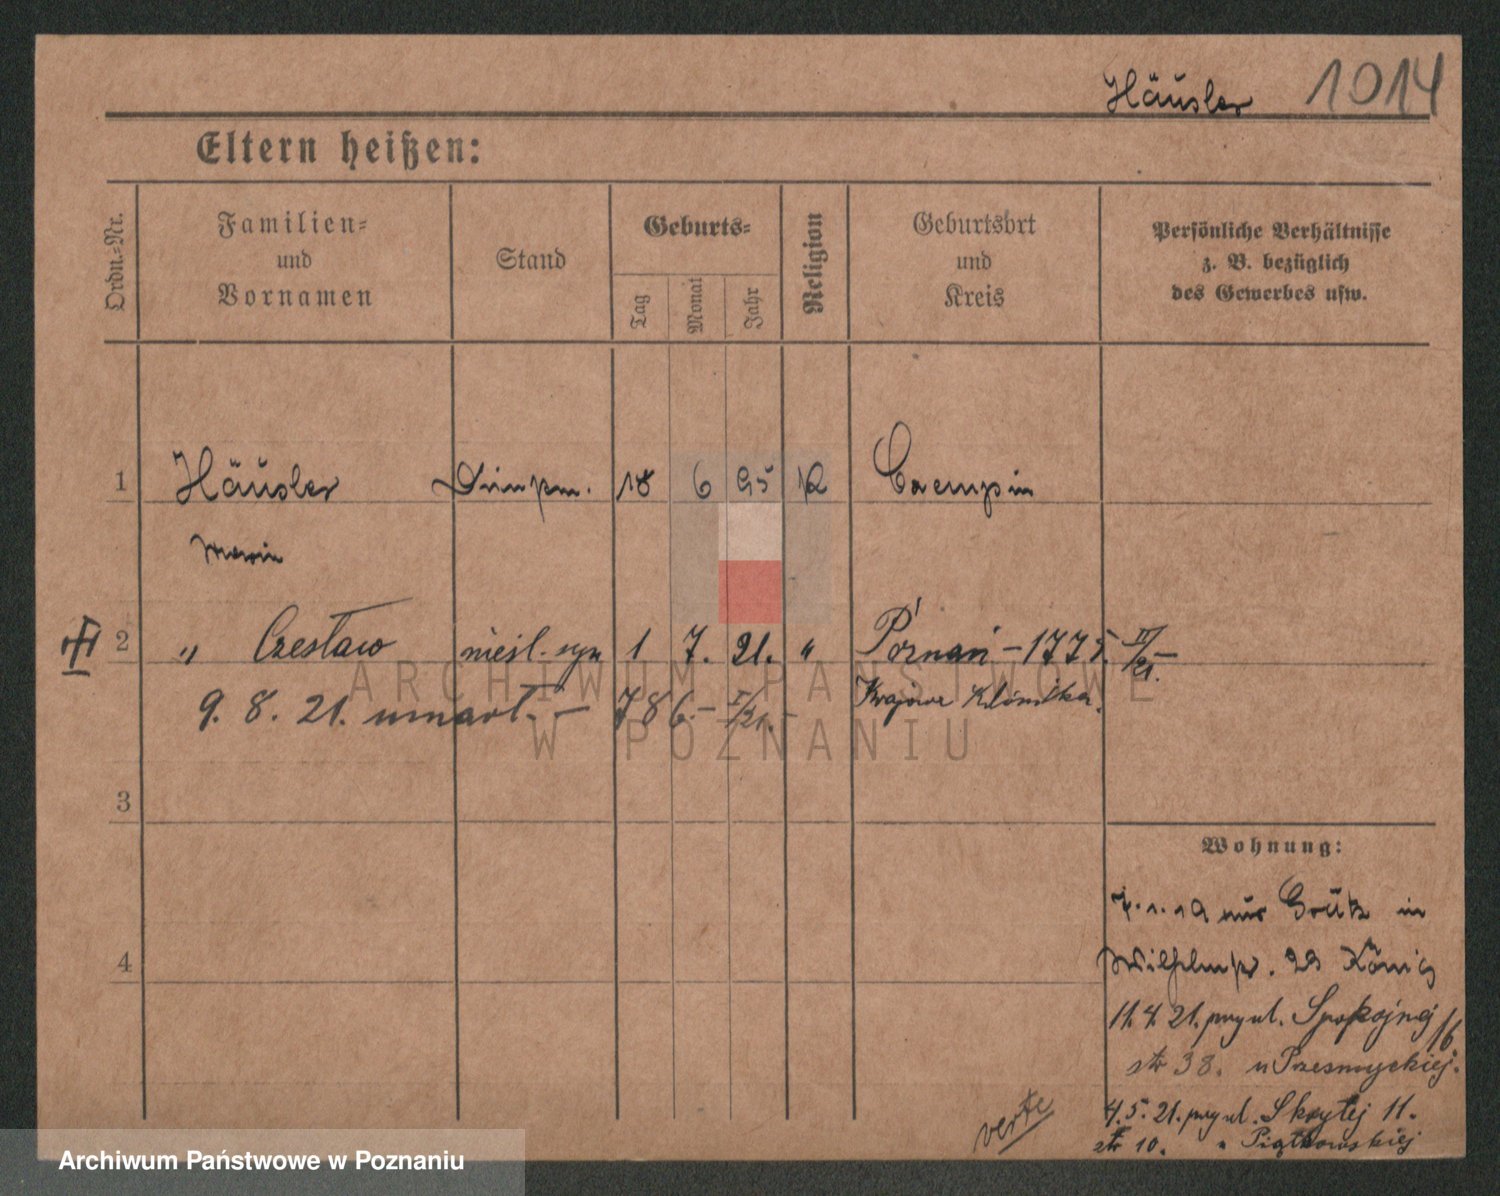 Häusler 1014
Eltern heißen:
Ordn.-Nr.
Familien-
und
Vornamen
Stand
Geburts-
Tag
Monat
Jahr
Religion
Geburtsort
und
Kreis
Persönliche Verhältnisse
z. B. bezüglich
des Gewerbes usw.
1 Häusler 18 6 95 K Czempin
Maria
2 " Czesław nieśl. syn 1 7. 21. " Poznań – 1775. IV/21. –
9. 8. 21. umarł. – 786. – I/21. – Krajowa Klinika.
3
4
Wohnung:
7.1.19 aus Grätz in
Wilhelmstr. 23 König
11.4.21. przy ul. Spokojnej 16.
str 38. u Przesmyckiej.
4.5.21. przy ul. Skrytej 11.
str 10. " Piątkowskiej
verte
ARCHIWUM PAŃSTWOWE
W POZNANIU
Archiwum Państwowe w Poznaniu